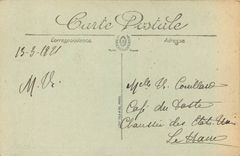 Carte Postale
Correspondance
Adresse
13-3-1921
M. Vr.
Melle Vr. Couillard
Café du Poste
Chaussée des Etats-Unis
Le Havre